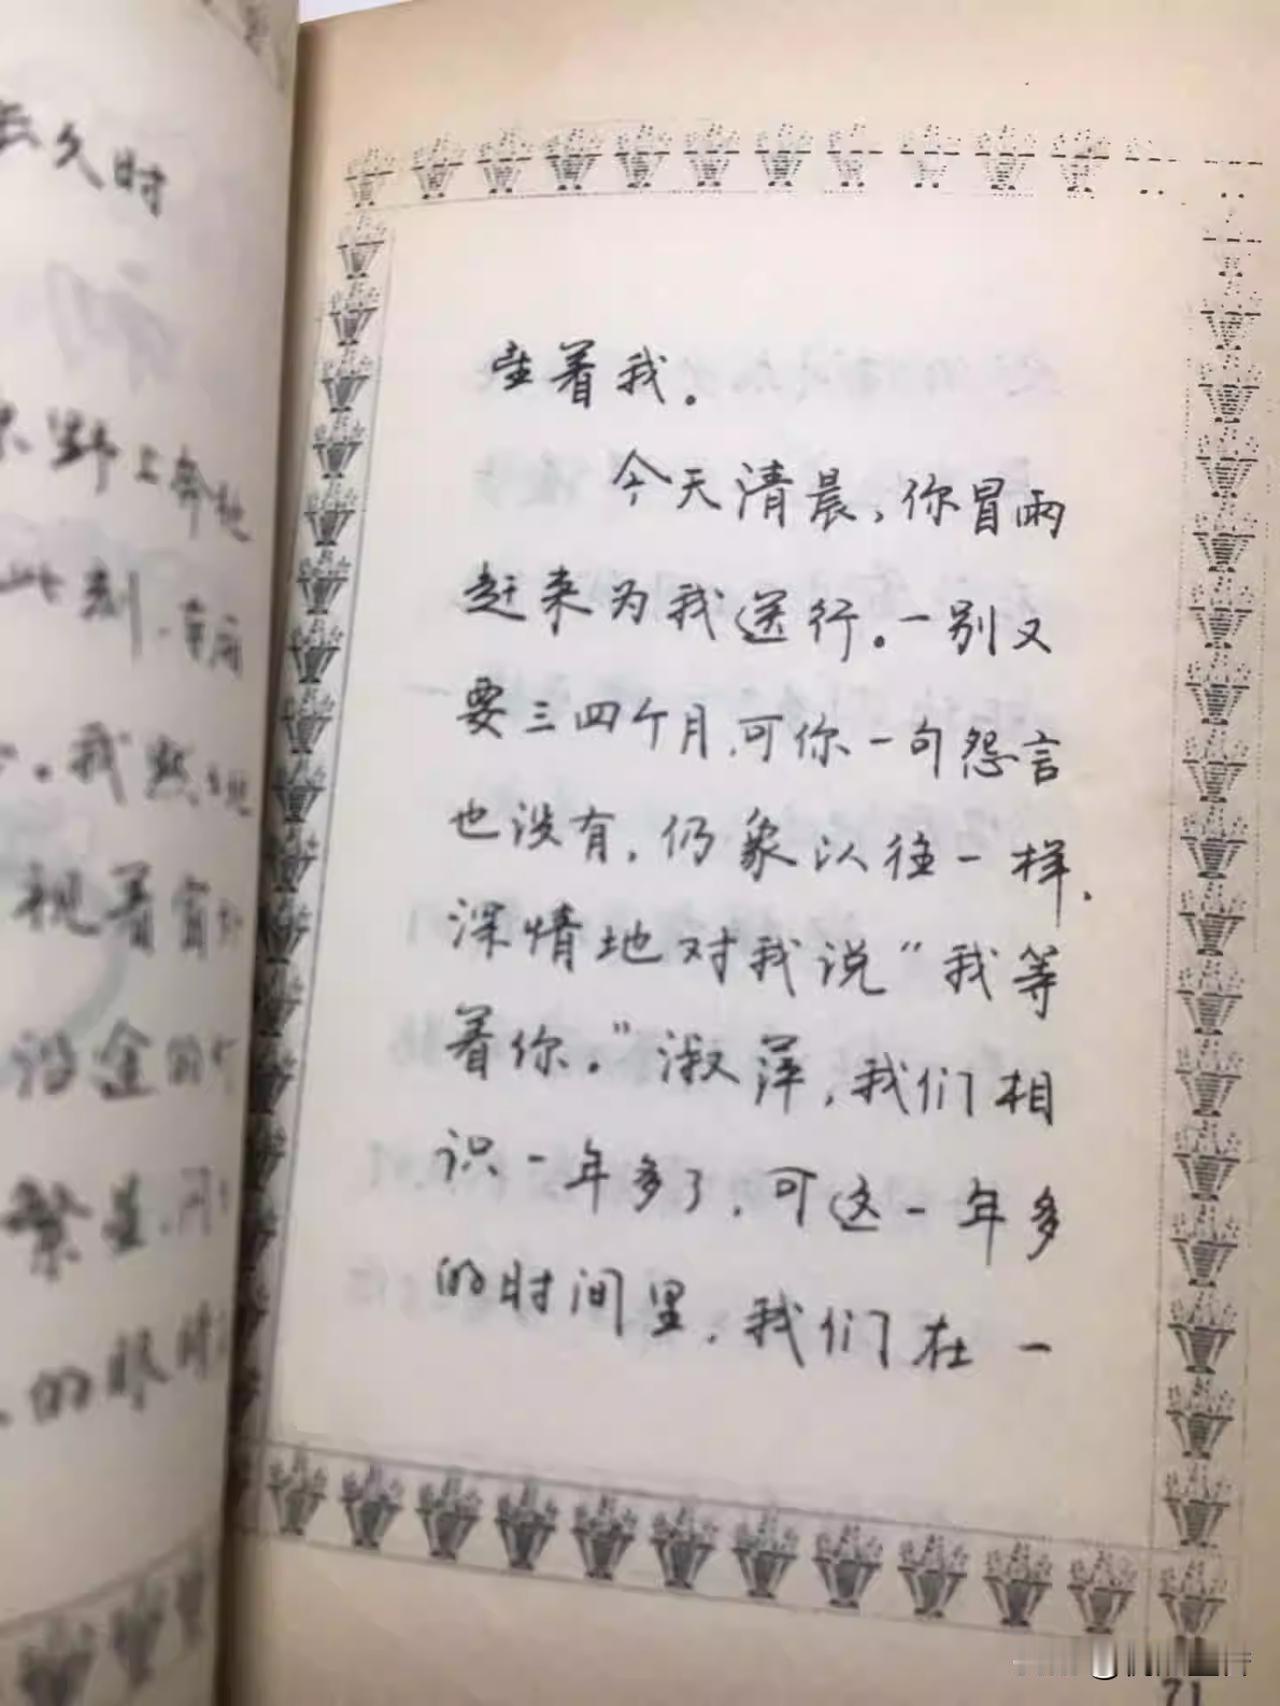 去久时
野上奔驰
此刻,车厢
。我默默地
视着窗外
沿途的
繁星,
的眼睛
望着我。
今天清晨,你冒雨
赶来为我送行。一别又
要三四个月,可你一句怨言
也没有,仍象以往一样,
深情地对我说“我等
着你。”淑萍,我们相
识一年多了,可这一年多
的时间里,我们在一
71